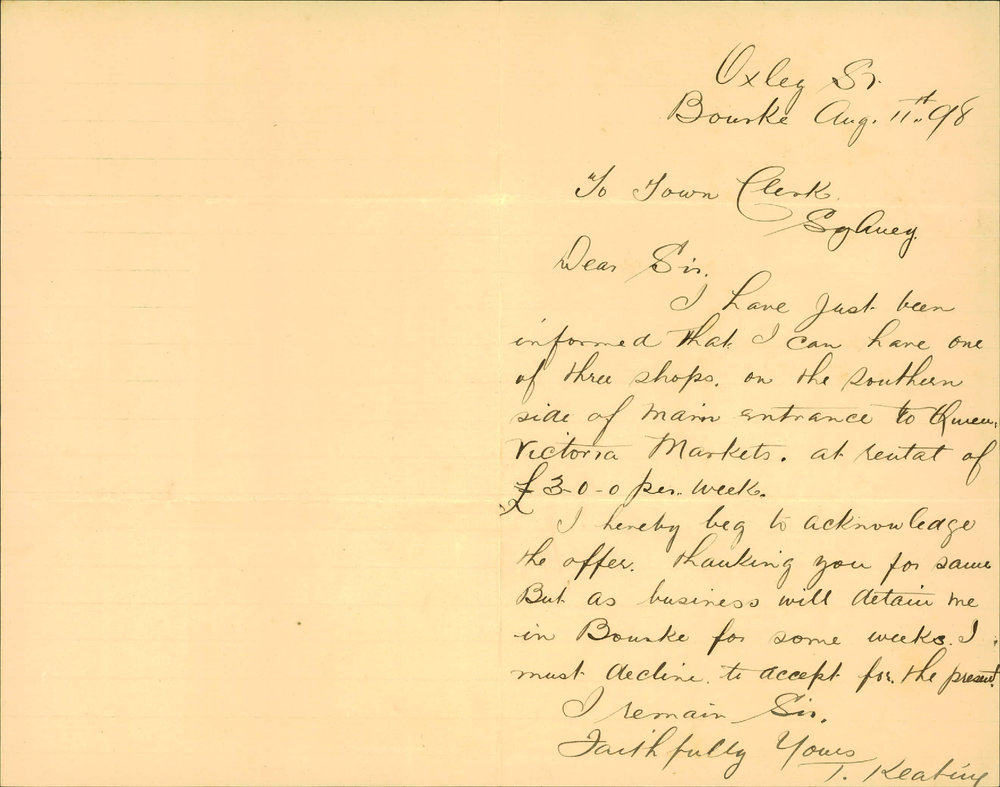 Oxley St.
Bourke Aug. 11th. 98
To Town Clerk.
Sydney.
Dear Sir.
I have just been
informed that I can have one
of three shops. on the southern
side of main entrance to Queen
Victoria Markets. at rental of
£3-0-0 per. week.
I hereby beg to acknowledge
the offer. thanking you for same
But as business will detain me
in Bourke for some weeks. I
must decline. to accept for. the present.
I remain Sir.
Faithfully Yours
T. Keating